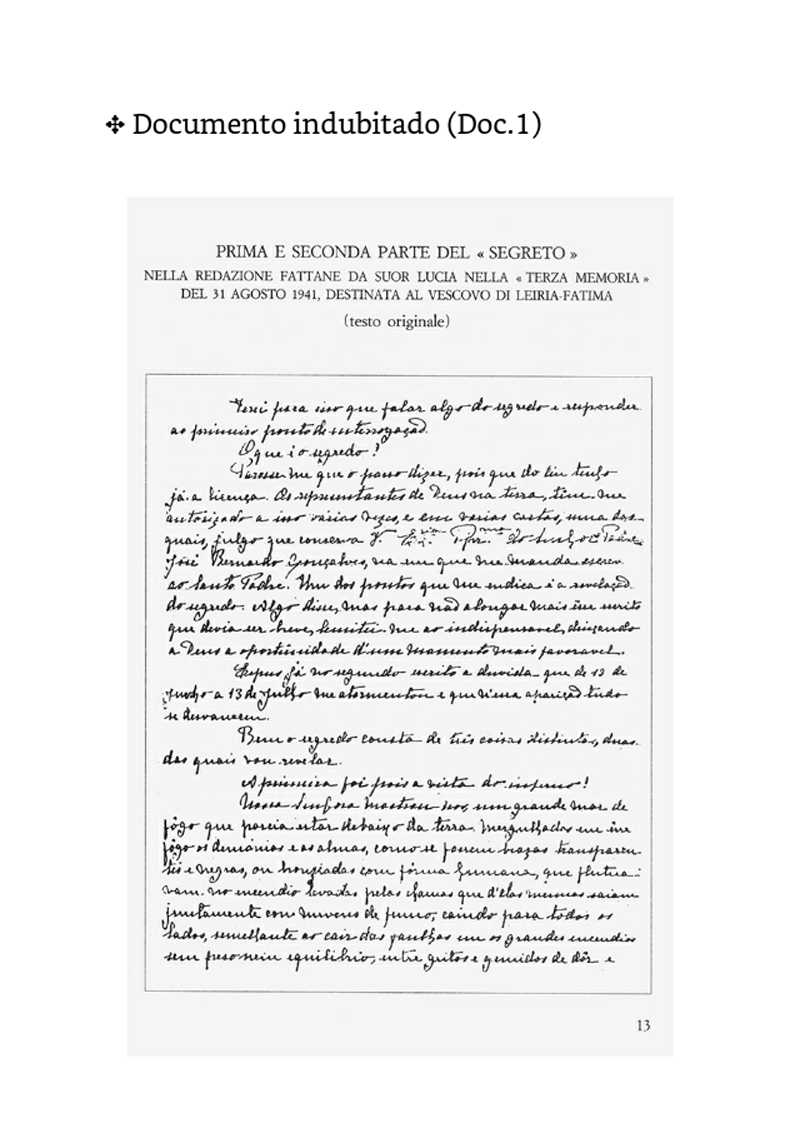 ✣ Documento indubitado (Doc.1)
PRIMA E SECONDA PARTE DEL « SEGRETO »
NELLA REDAZIONE FATTANE DA SUOR LUCIA NELLA « TERZA MEMORIA »
DEL 31 AGOSTO 1941, DESTINATA AL VESCOVO DI LEIRIA-FATIMA
(testo originale)
Terei para isso que falar algo do segredo e responder
ao primeiro ponto de interrogação.
O que é o segredo?
Parece-me que o posso dizer, pois que do Céu tenho
já a licença. Os representantes de Deus na terra, têm-me
autorizado a isso várias vezes, e em várias cartas, uma das
quais, julgo que conserva V. Ex.cia Rev.ma do Senhor Padre
José Bernardo Gonçalves, na em que me manda escrever
ao Santo Padre. Um dos pontos que me indica é a revelação
do segredo. Algo disse, mas para não alongar mais êsse escrito
que devia ser breve, limitei-me ao indispensavel, deixando
a Deus a oportunidade d'um momento mais favoravel.
Expus já no segundo escrito a duvida que de 13 de
Junho a 13 de Julho me atormentou e que n'essa aparição tudo
se desvaneceu.
Bem o segredo consta de três coisas distintas, duas
das quais vou revelar.
A primeira foi pois a vista do inferno!
Nossa Senhora mostrou-nos um grande mar de
fôgo que parecia estar debaixo da terra. Mergulhados em êsse
fôgo os demónios e as almas, como se fossem brazas transparen-
tes e negras, ou bronziadas com fórma humana, que flutua-
vam no incendio levadas pelas chamas que d'elas mesmas saiam
juntamente com nuvens de fumo, caindo para todos os
lados, semelhante ao cair das faulhas em os grandes incendios
sem peso nem equilibrio, entre gritos e gemidos de dôr e
13